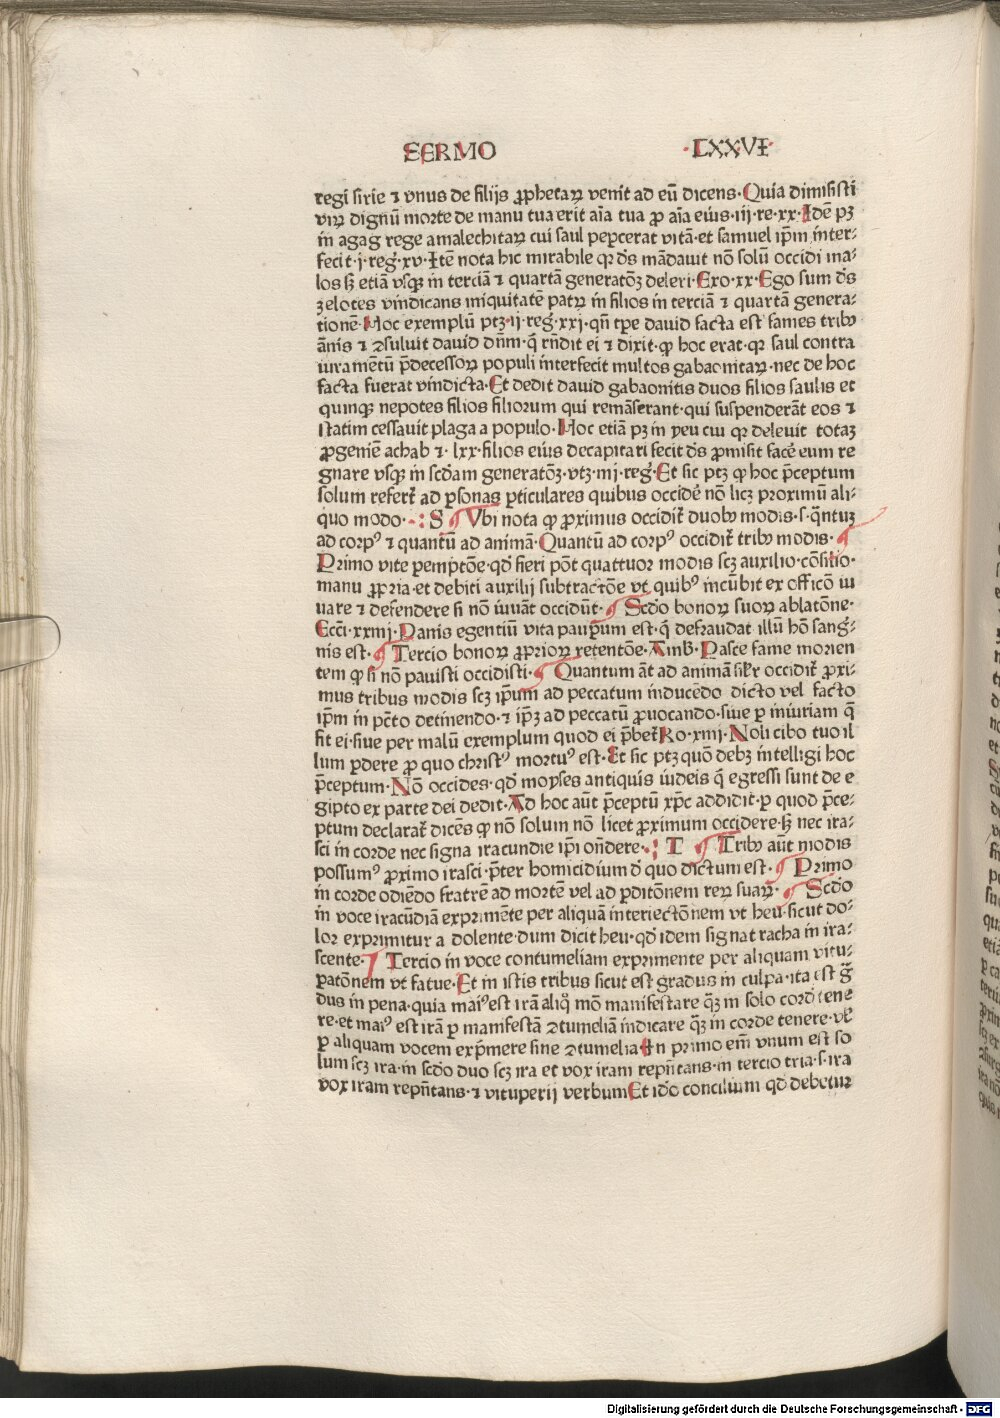 SERMO ·LXXVI·
regi sirie ⁊ vnus de filijs ꝓphetaꝝ venit ad eū dicens·Quia dimisisti
viꝝ dignū morte de manu tua erit aīa tua ꝓ aīa eius·iij·re·xx·Idē pꝫ
in agag rege amalechitaꝝ cui saul peꝑcerat vitā·et samuel ip̄m inter⸗
fecit·j·reg̛·xv·Itē nota hic mirabile qꝛ dn̄s mādauit nō solū occidi ma⸗
los sꝫ etiā vsqꝫ in terciā ⁊ quartā generatōꝫ deleri·Exo·xx·Ego sum dn̄s
zelotes vindicans iniquitatē patꝝ in filios in terciā ⁊ quartā genera⸗
tionē·Hoc exemplū ptꝫ·ij·reg̛·xxj·qn̄ tꝑe dauid facta est fames tribꝫ
ānis ⁊ ↄsuluit dauid dn̄m·q̄ rn̄dit ei ⁊ dixit·ꝙ hoc erat·qꝛ saul contra
iuramētū p̄decessoꝝ populi interfecit multos gabaonitaꝝ·nec de hoc
facta fuerat vindicta·Et dedit dauid gabaonitis duos filios saulis et
quinqꝫ nepotes filios filiorum qui remāserant·qui suspenderāt eos ⁊
statim cessauit plaga a populo·Hoc etiā pꝫ in yeu cui qꝛ deleuit totaꝫ
ꝓgeniē achab ⁊·lxx·filios eius decapitari fecit dn̄s ꝓmisit facē̛ eum re
gnare vsqꝫ in scd̄am generatōꝫ·vtꝫ·iiij·reg̛·Et sic ptꝫ ꝙ hoc p̄ceptum
solum refert̄ ad ꝑsonas ꝑticulares quibus occidē̛ nō licꝫ proximū ali⸗
quo modo·⁖ S ¶ Vbi nota ꝙ ꝓximus occidit̄ duobꝫ modis·s·q̄ntuꝫ
ad corpꝰ ⁊ quantū ad animā·Quantū ad corpꝰ occidit̄ tribꝫ modis·¶
Primo vite ꝑemptōe·qd̄ fieri pōt quattuor modis scꝫ auxilio·cōsilio·
manu ꝓpria·et debiti auxilij subtractōe vt quibꝰ incūbit ex officō iu
uare ⁊ defendere si nō iuuāt occidūt·¶ Scd̄o bonoꝝ suoꝝ ablatōne·
Ecci̅·xxiiij·Panis egentiū vita pauꝑum est·q̄ defraudat illū hō sang̛⸗
nis est·¶ Tercio bonoꝝ ꝓprioꝝ retentōe·Amb̄·Pasce fame morien
tem ꝙ si nō pauisti occidisti·¶ Quantum āt ad animā silr̄ occidit̄ ꝓxi⸗
mus tribus modis scꝫ ip̄um ad peccatum inducēdo dicto vel facto
ip̄m in pc̄to detinendo·⁊ ip̄ꝫ ad peccatū ꝓuocando·siue ꝑ iniuriam q̄
fit ei·siue per malū exemplum quod ei p̄bet̄ Ro·xiiij·Noli cibo tuo il
lum ꝑdere ꝓ quo christꝰ mortuꝰ est·Et sic ptꝫ quō debꝫ intelligi hoc
p̄ceptum·Nō occides·qd̄ moyses antiquis iudeis q̄ egressi sunt de e
gipto ex parte dei dedit·Ad hoc aūt p̄ceptū xp̄c addidit·ꝑ quod p̄ce⸗
ptum declarat̄ dicēs ꝙ nō solum nō licet ꝓximum occidere·sꝫ nec ira⸗
sci in corde nec signa iracundie ip̄i on̄dere·⁖ T ¶ Tribꝫ aūt modis
possumꝰ ꝓximo irasci·p̄ter homicidium d̄ quo dictum est·¶ Primo
in corde odiēdo fratrē ad mortē vel ad ꝑditōnem reꝝ suaꝝ·¶ Scd̄o
in voce iracūdiā exprimēte per aliquā interiectōnem vt heu·sicut do⸗
lor exprimitur a dolente·dum dicit heu·qd̄ idem signat racha in ira⸗
scente·¶ Tercio in voce contumeliam exprimente per aliquam vitu⸗
ꝑatōnem vt fatue·Et in istis tribus sicut est gradus in culpa·ita est g̃
dus in pena·quia maiꝰ est irā aliq̊ mō manifestare q̄ꝫ in solo cord̛ tene
re·et maiꝰ est irā ꝑ manifestā ↄtumeliā indicare q̄ꝫ in corde tenere·vl̄
ꝑ aliquam vocem exp̄mere sine ↄtumelia·In primo em̄ vnum est so
lum scꝫ ira·in scd̄o duo scꝫ ira et vox iram repn̄tans·in tercio tria·s·ira
vox iram repn̄tans·⁊ vituperij verbum·Et id̄o concilium qd̄ debetur
Digitalisierung gefördert durch die Deutsche Forschungsgemeinschaft - DFG